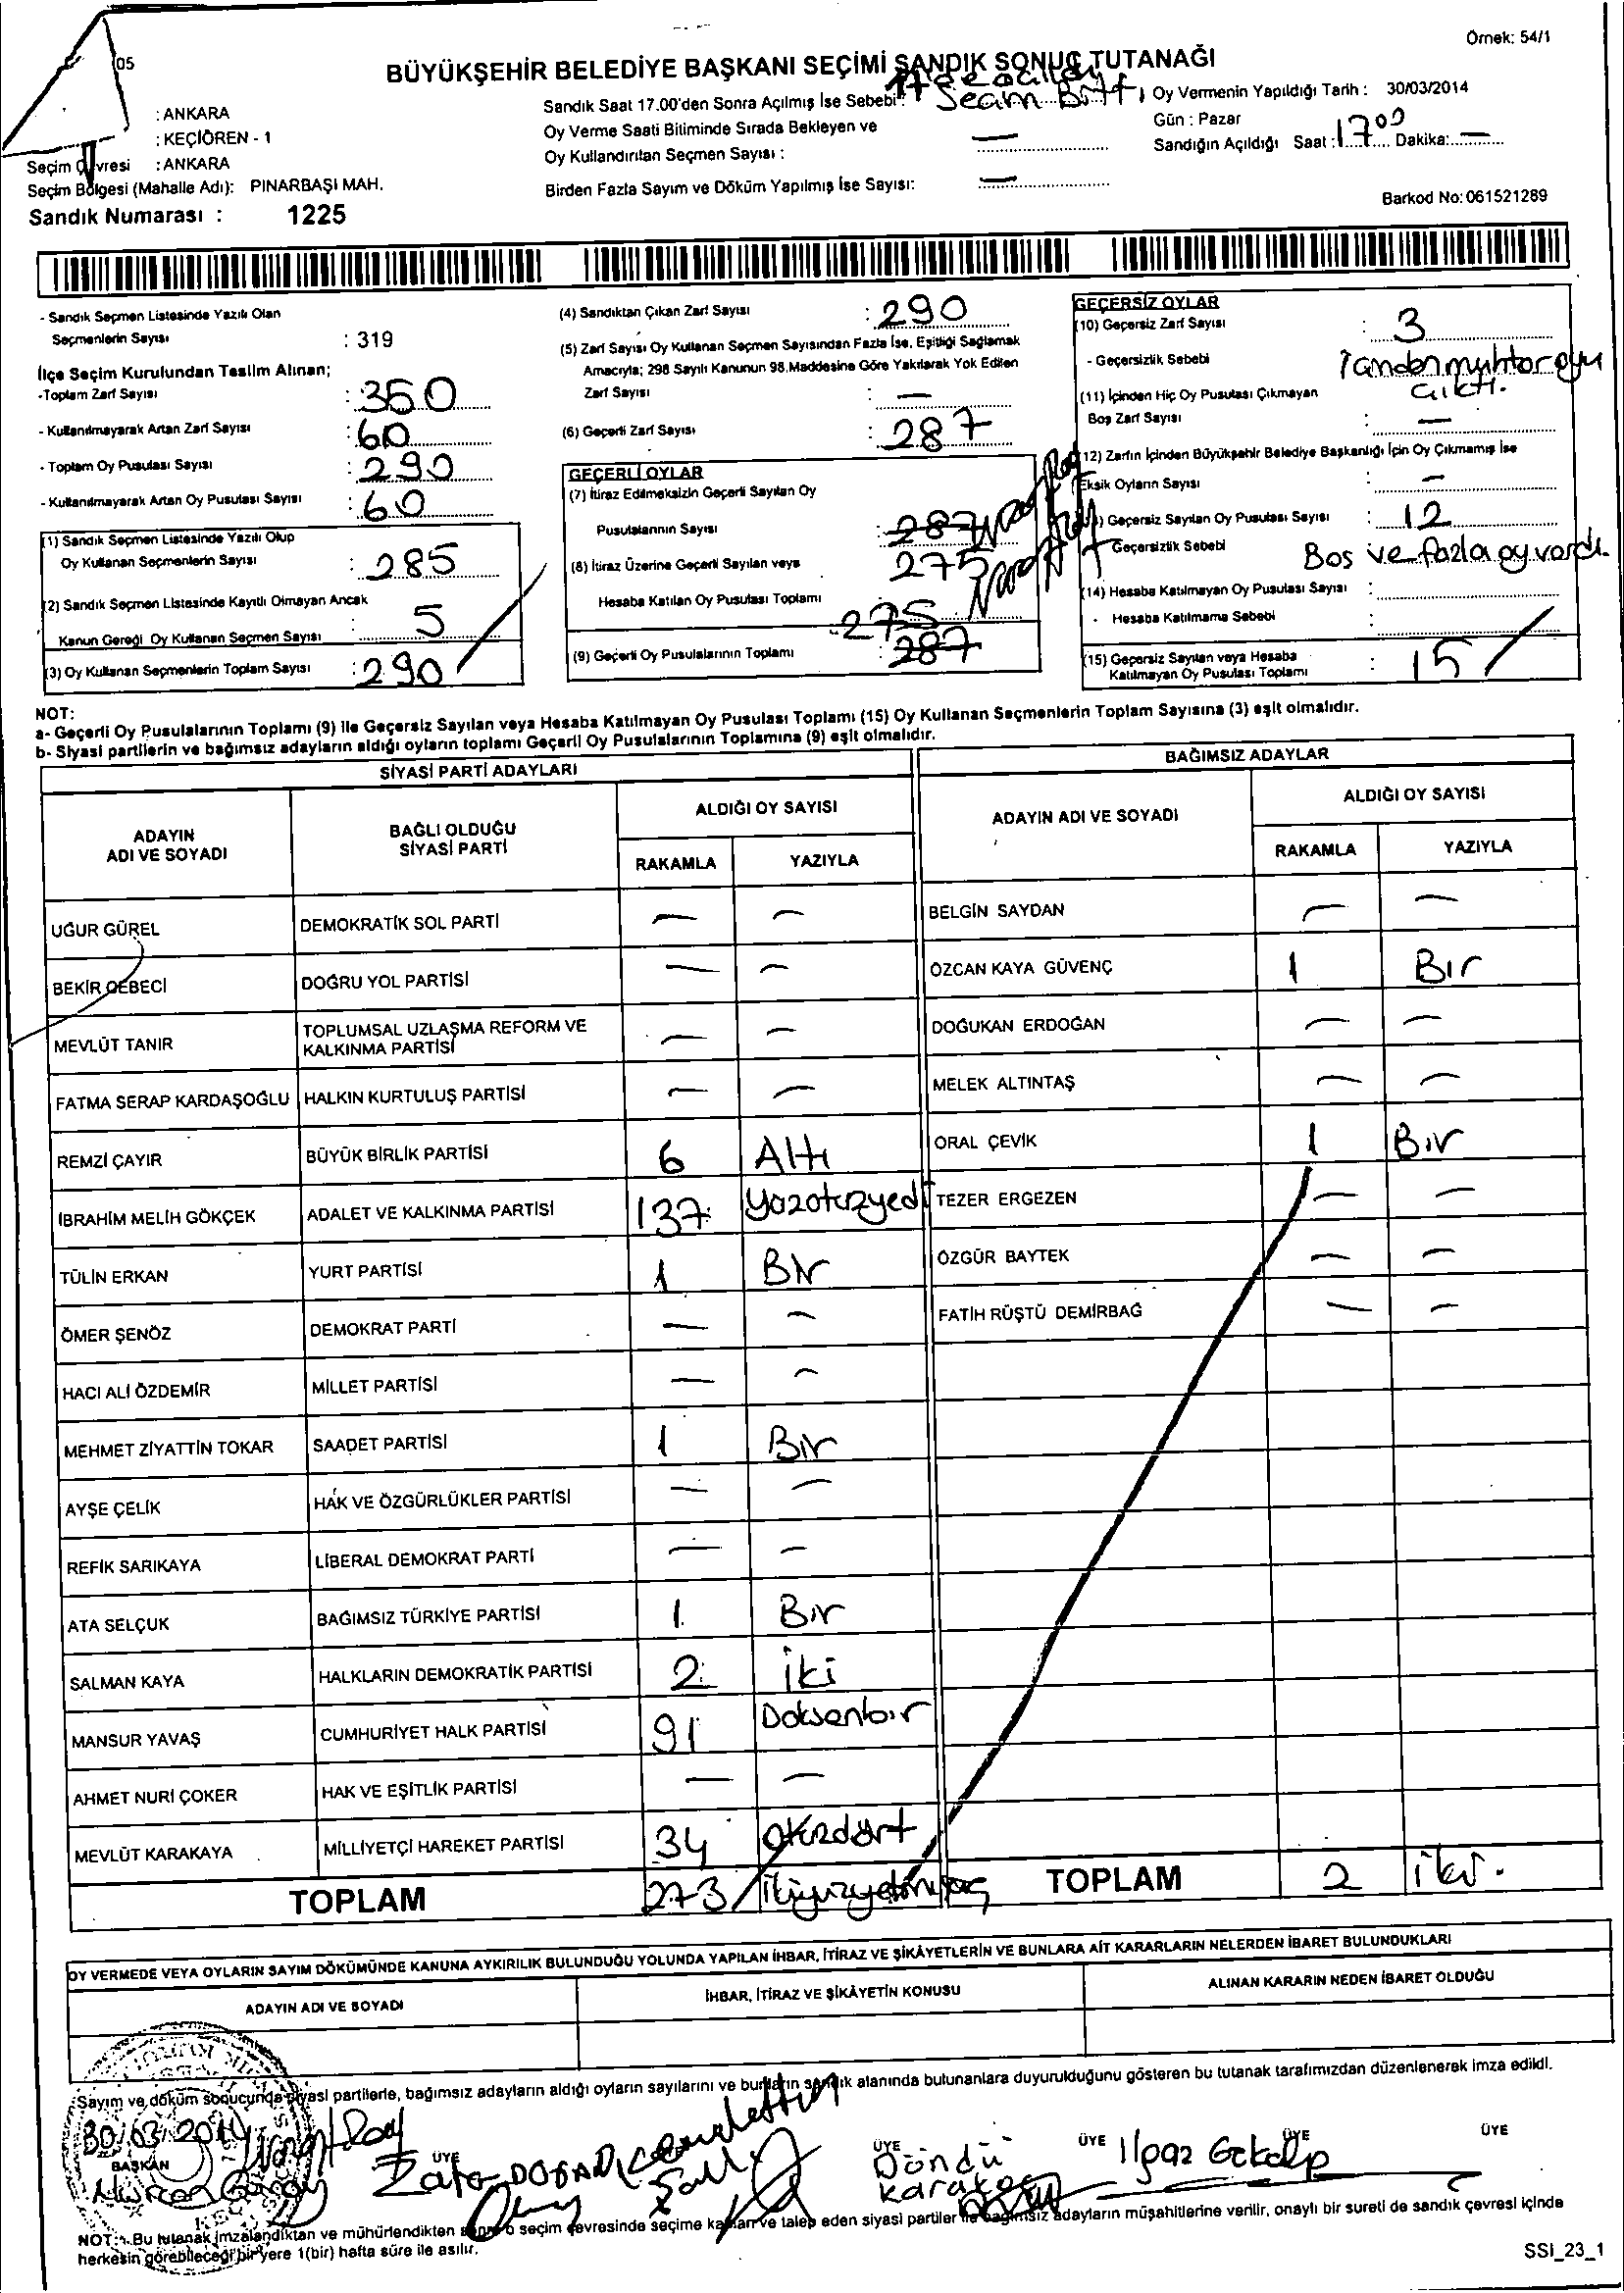 Örnek: 54/1
05
BÜYÜKŞEHİR BELEDİYE BAŞKANI SEÇİMİ SANDIK SONUÇ TUTANAĞI
: ANKARA
: KEÇİÖREN - 1
Seçim Çevresi : ANKARA
Seçim Bölgesi (Mahalle Adı): PINARBAŞI MAH.
Sandık Numarası : 1225
Sandık Saat 17.00'den Sonra Açılmış İse Sebebi:
Oy Verme Saati Bitiminde Sırada Bekleyen ve
Oy Kullandırılan Seçmen Sayısı : —
Birden Fazla Sayım ve Döküm Yapılmış İse Sayısı: —
Oy Vermenin Yapıldığı Tarih : 30/03/2014
Gün : Pazar
Sandığın Açıldığı Saat : 17 00 Dakika: —
Barkod No: 061521289
- Sandık Seçmen Listesinde Yazılı Olan
Seçmenlerin Sayısı : 319
İlçe Seçim Kurulundan Teslim Alınan;
-Toplam Zarf Sayısı : 350
- Kullanılmayarak Artan Zarf Sayısı : 60
- Toplam Oy Pusulası Sayısı : 290
- Kullanılmayarak Artan Oy Pusulası Sayısı : 60
(1) Sandık Seçmen Listesinde Yazılı Olup
Oy Kullanan Seçmenlerin Sayısı : 285
(2) Sandık Seçmen Listesinde Kayıtlı Olmayan Ancak
Kanun Gereği Oy Kullanan Seçmen Sayısı : 5
(3) Oy Kullanan Seçmenlerin Toplam Sayısı : 290
(4) Sandıktan Çıkan Zarf Sayısı : 290
(5) Zarf Sayısı Oy Kullanan Seçmen Sayısından Fazla İse, Eşitliği Sağlamak
Amacıyla; 298 Sayılı Kanunun 98.Maddesine Göre Yakılarak Yok Edilen
Zarf Sayısı : —
(6) Geçerli Zarf Sayısı : 287
GEÇERLİ OYLAR
(7) İtiraz Edilmeksizin Geçerli Sayılan Oy
Pusulalarının Sayısı : 287
275
(8) İtiraz Üzerine Geçerli Sayılan veya
Hesaba Katılan Oy Pusulası Toplamı
275
(9) Geçerli Oy Pusulalarının Toplamı : 287
GEÇERSİZ OYLAR
(10) Geçersiz Zarf Sayısı : 3
- Geçersizlik Sebebi İçinden muhtar oyu
çıktı.
(11) İçinden Hiç Oy Pusulası Çıkmayan
Boş Zarf Sayısı : —
(12) Zarfın İçinden Büyükşehir Belediye Başkanlığı İçin Oy Çıkmamış İse
Eksik Oyların Sayısı : —
) Geçersiz Sayılan Oy Pusulası Sayısı : 12
Geçersizlik Sebebi Bos ve fazla oy vardı.
(14) Hesaba Katılmayan Oy Pusulası Sayısı :
- Hesaba Katılmama Sebebi :
(15) Geçersiz Sayılan veya Hesaba
Katılmayan Oy Pusulası Toplamı : 15
NOT:
a- Geçerli Oy Pusulalarının Toplamı (9) ile Geçersiz Sayılan veya Hesaba Katılmayan Oy Pusulası Toplamı (15) Oy Kullanan Seçmenlerin Toplam Sayısına (3) eşit olmalıdır.
b- Siyasi partilerin ve bağımsız adayların aldığı oyların toplamı Geçerli Oy Pusulalarının Toplamına (9) eşit olmalıdır.
SİYASİ PARTİ ADAYLARI
ADAYIN ADI VE SOYADI BAĞLI OLDUĞU SİYASİ PARTİ ALDIĞI OY SAYISI
RAKAMLA YAZIYLA
UĞUR GÜREL DEMOKRATİK SOL PARTİ — —
BEKİR GEBECİ DOĞRU YOL PARTİSİ — —
MEVLÜT TANIR TOPLUMSAL UZLAŞMA REFORM VE KALKINMA PARTİSİ — —
FATMA SERAP KARDAŞOĞLU HALKIN KURTULUŞ PARTİSİ — —
REMZİ ÇAYIR BÜYÜK BİRLİK PARTİSİ 6 Altı
İBRAHİM MELİH GÖKÇEK ADALET VE KALKINMA PARTİSİ 137 Yüzotuzyedi
TÜLİN ERKAN YURT PARTİSİ 1 Bir
ÖMER ŞENÖZ DEMOKRAT PARTİ — —
HACI ALİ ÖZDEMİR MİLLET PARTİSİ — —
MEHMET ZİYATTİN TOKAR SAADET PARTİSİ 1 Bir
AYŞE ÇELİK HAK VE ÖZGÜRLÜKLER PARTİSİ — —
REFİK SARIKAYA LİBERAL DEMOKRAT PARTİ — —
ATA SELÇUK BAĞIMSIZ TÜRKİYE PARTİSİ 1 Bir
SALMAN KAYA HALKLARIN DEMOKRATİK PARTİSİ 2 iki
MANSUR YAVAŞ CUMHURİYET HALK PARTİSİ 91 Doksanbir
AHMET NURİ ÇOKER HAK VE EŞİTLİK PARTİSİ — —
MEVLÜT KARAKAYA MİLLİYETÇİ HAREKET PARTİSİ 34 otuzdört
TOPLAM 273 ikiyüzyetmişüç
BAĞIMSIZ ADAYLAR
ADAYIN ADI VE SOYADI ALDIĞI OY SAYISI
RAKAMLA YAZIYLA
BELGİN SAYDAN — —
ÖZCAN KAYA GÜVENÇ 1 Bır
DOĞUKAN ERDOĞAN — —
MELEK ALTINTAŞ — —
ORAL ÇEVİK 1 Bir
TEZER ERGEZEN — —
ÖZGÜR BAYTEK — —
FATİH RÜŞTÜ DEMİRBAĞ — —
TOPLAM 2 iki.
OY VERMEDE VEYA OYLARIN SAYIM DÖKÜMÜNDE KANUNA AYKIRILIK BULUNDUĞU YOLUNDA YAPILAN İHBAR, İTİRAZ VE ŞİKÂYETLERİN VE BUNLARA AİT KARARLARIN NELERDEN İBARET BULUNDUKLARI
ADAYIN ADI VE SOYADI İHBAR, İTİRAZ VE ŞİKÂYETİN KONUSU ALINAN KARARIN NEDEN İBARET OLDUĞU
Sayım ve döküm sonucunda siyasi partilerle, bağımsız adayların aldığı oyların sayılarını ve bunların sandık alanında bulunanlara duyurulduğunu gösteren bu tutanak tarafımızdan düzenlenerek imza edildi.
30/03/2014
BAŞKAN ÜYE ÜYE ÜYE ÜYE ÜYE
DOĞAN
Döndü
Ilgaz Gökalp
NOT: Bu tutanak imzalandıktan ve mühürlendikten sonra o seçim çevresinde seçime katılan ve talep eden siyasi partiler ile bağımsız adayların müşahitlerine verilir, onaylı bir sureti de sandık çevresi içinde
herkesin görebileceği bir yere 1(bir) hafta süre ile asılır.
SSI_23_1